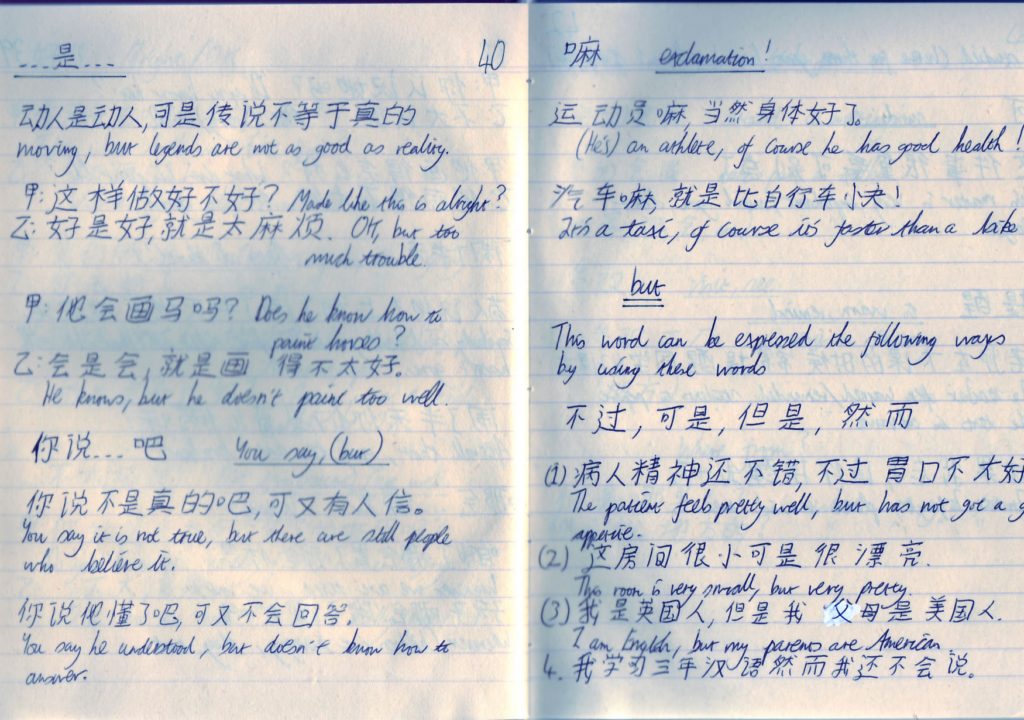 ...是... 40
动人是动人,可是传说不等于真的
moving, but legends are not as good as reality.
甲:这样做好不好? Made like this is alright?
乙:好是好,就是太麻烦. OK, but too
much trouble.
甲:他会画马吗? Does he know how to
paint horses?
乙:会是会,就是画 得不太好。
He knows, but he doesn't paint too well.
你说...吧 You say, (but)
你说不是真的吧,可又有人信。
You say it is not true, but there are still people
who believe it.
你说他懂了吧,可又不会回答.
You say he understood, but doesn't know how to
answer.
嘛 exclamation!
运动员嘛,当然身体好了。
(He's) an athlete, of course he has good health!
汽车嘛,就是比自行车快!
It's a taxi, of course it's faster than a bike
but
This word can be expressed the following ways
by using these words
不过,可是,但是,然而
(1) 病人精神还不错,不过胃口不太好
The patient feels pretty well, but has not got a g
appetite.
(2) 这房间很小可是很漂亮.
This room is very small, but very pretty.
(3) 我是英国人,但是我父母是美国人.
I am English, but my parents are American.
4. 我学习三年汉语然而我还不会说。